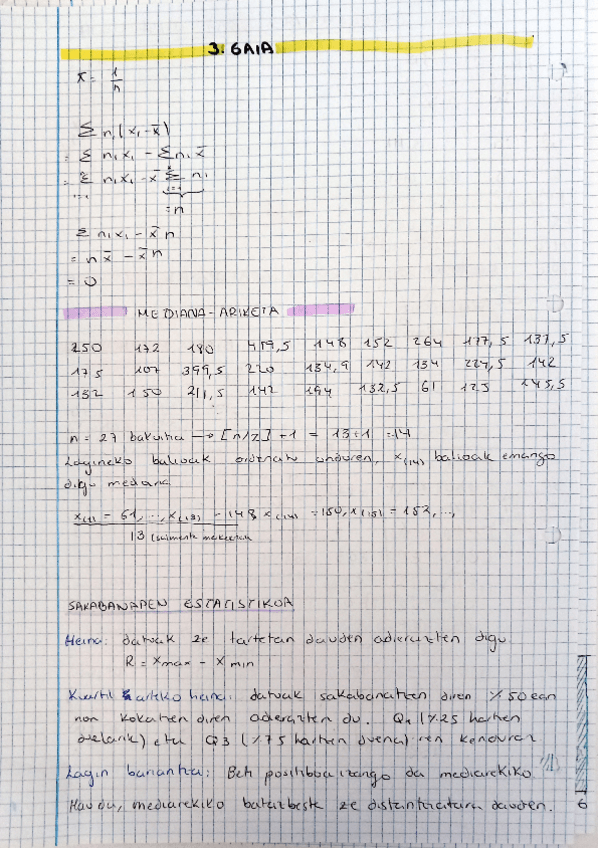 3. GAIA
x̄ = 1/n
Σ nᵢ(xᵢ - x̄)
= Σ nᵢ xᵢ - Σ nᵢ x̄
= Σ nᵢ xᵢ - x̄ Σ nᵢ
= n
Σ nᵢ xᵢ - x̄ n
= n x̄ - x̄ n
= 0
MEDIANA - ARIKETA
250 172 180 419,5 148 152 264 177,5 137,5
175 107 399,5 220 134,9 142 134 224,5 142
132 150 211,5 142 194 132,5 61 123 145,5
n = 27 bakoitia → [n/2] + 1 = 13+1 = 14
Lagineko balioak ordenatu ondoren, x(14) balioak emango
digu mediana
x(1) = 61, ..., x(13) = 148 x(14) = 150, x(15) = 152, ...,
13
SAKABANAPEN ESTATISTIKOA
Heina: datuak ze tartetan dauden adierazten digu
R = xmax - xmin
Kuartil arteko heina: datuak sakabanatzen diren %50ean
non kokatzen diren adierazten du. Q1 (%25 hartzen
duelarik) eta Q3 (%75 hartzen duena) ren kendura
Lagin bariantza: Beti positiboa izango da mediarekiko
Hau da, mediarekiko batazbeste ze distantziatara dauden.
6